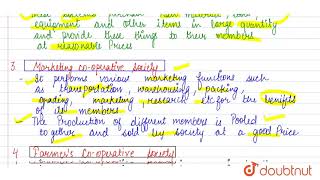 equipment and other items in large quantity
and provide these things to their members
at reasonable Prices
3. Marketing co-operative Society
→ It performs various marketing functions such
as transportation, warehousing, packing,
grading, marketing research etc for the benefits
of its members
→ The Production of different members is Pooled
together and sold by society at a good Price
4 Farmer's Co-operative Society
doubtnut